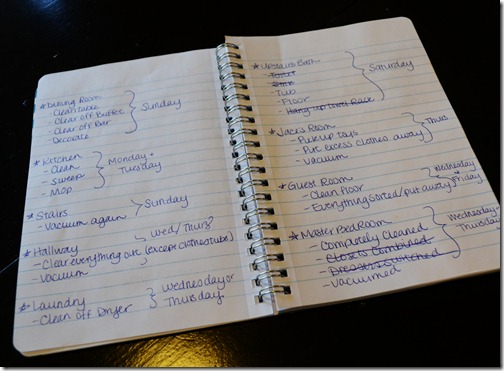 * Dining Room
- Clean table
- Clear off Buffet
- Clear off Bar
- Decorate
Sunday
* Kitchen
- Clean
- Sweep
- Mop
Monday +
Tuesday
* Stairs
- Vacuum again
Sunday
* Hallway
- Clear everything out (except clothes tubs)
- Vacuum
Wed/Thurs?
* Laundry
- Clean off Dryer
Wednesday or
Thursday
* Upstairs Bath
- Toilet
- Sink
- Tub
- Floor
- Hang up towel Rack
Saturday
* Jack's Room
- Pick up toys
- Put excess clothes away
- Vacuum
Thurs
* Guest Room
- Clean Floor
- Everything sorted/put away
Wednesday
Friday
* Master Bed Room
- Completely Cleaned
- Closets Combined
- Dressers Switched
- Vacuumed
Wednesday +
Thursday